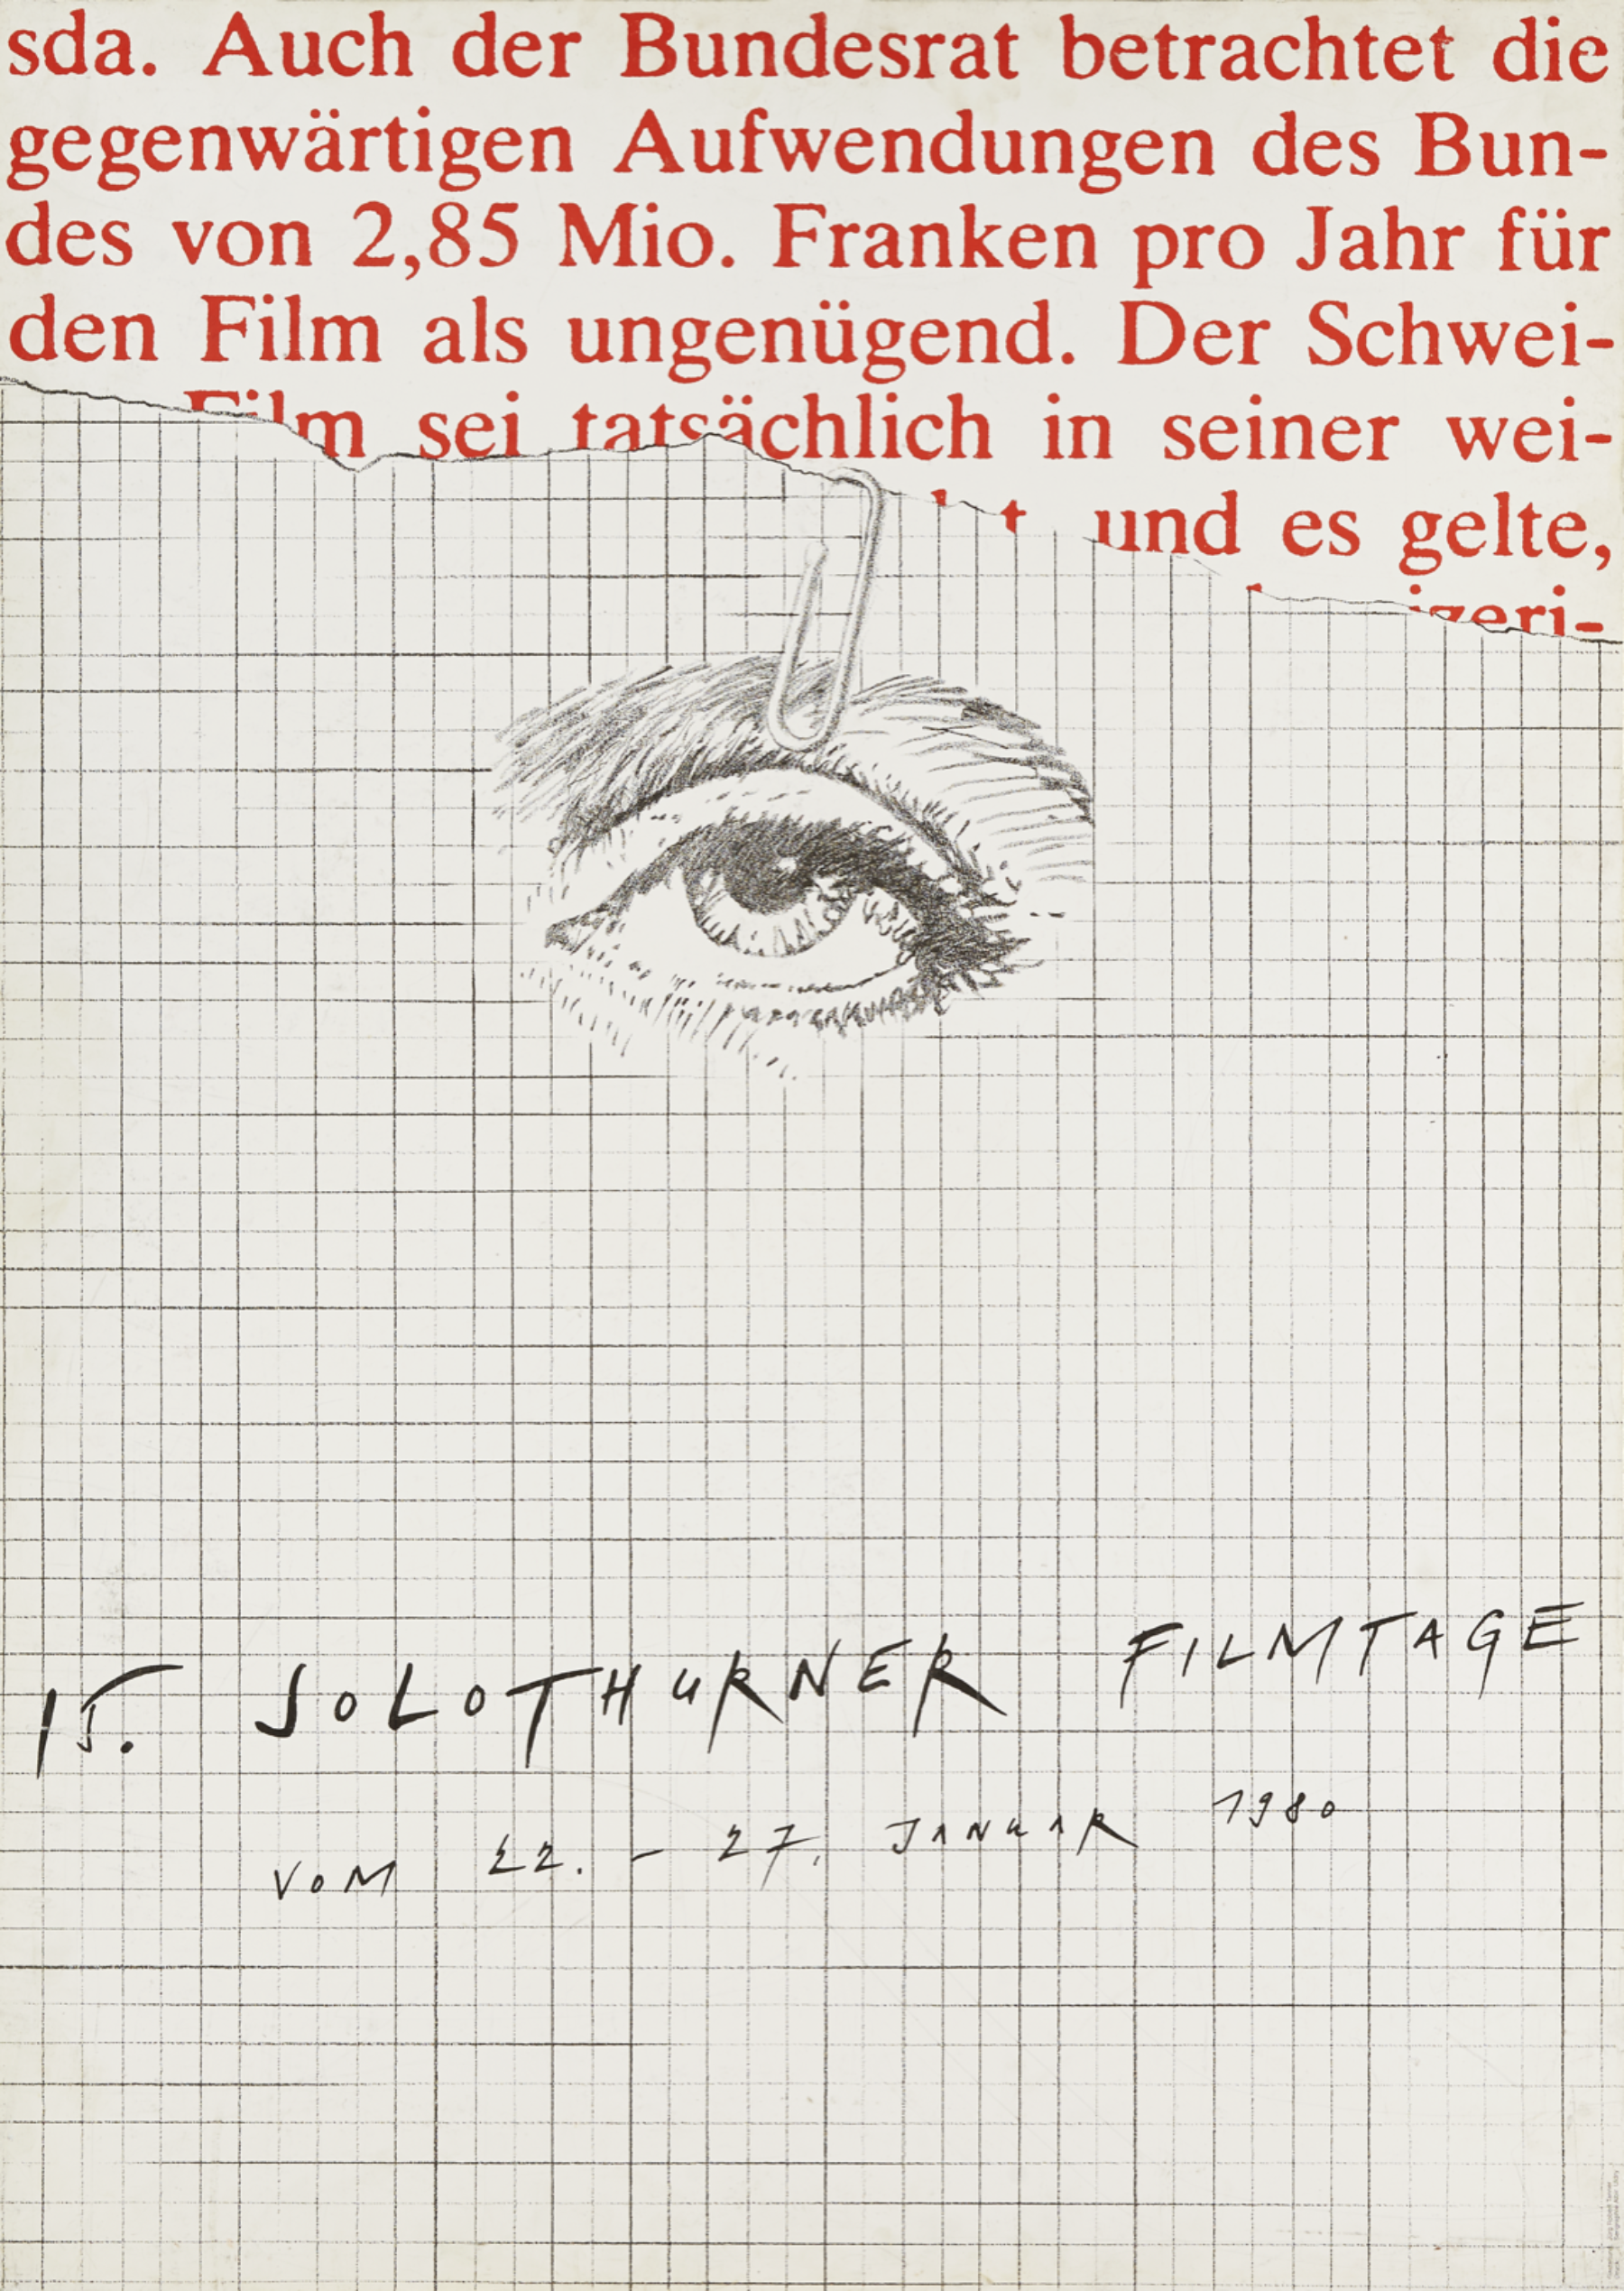 sda. Auch der Bundesrat betrachtet die
gegenwärtigen Aufwendungen des Bun-
des von 2,85 Mio. Franken pro Jahr für
den Film als ungenügend. Der Schwei-
Film sei tatsächlich in seiner wei-
t und es gelte,
izeri-
15. SOLOTHURNER FILMTAGE
VOM 22. - 27. JANUAR 1980